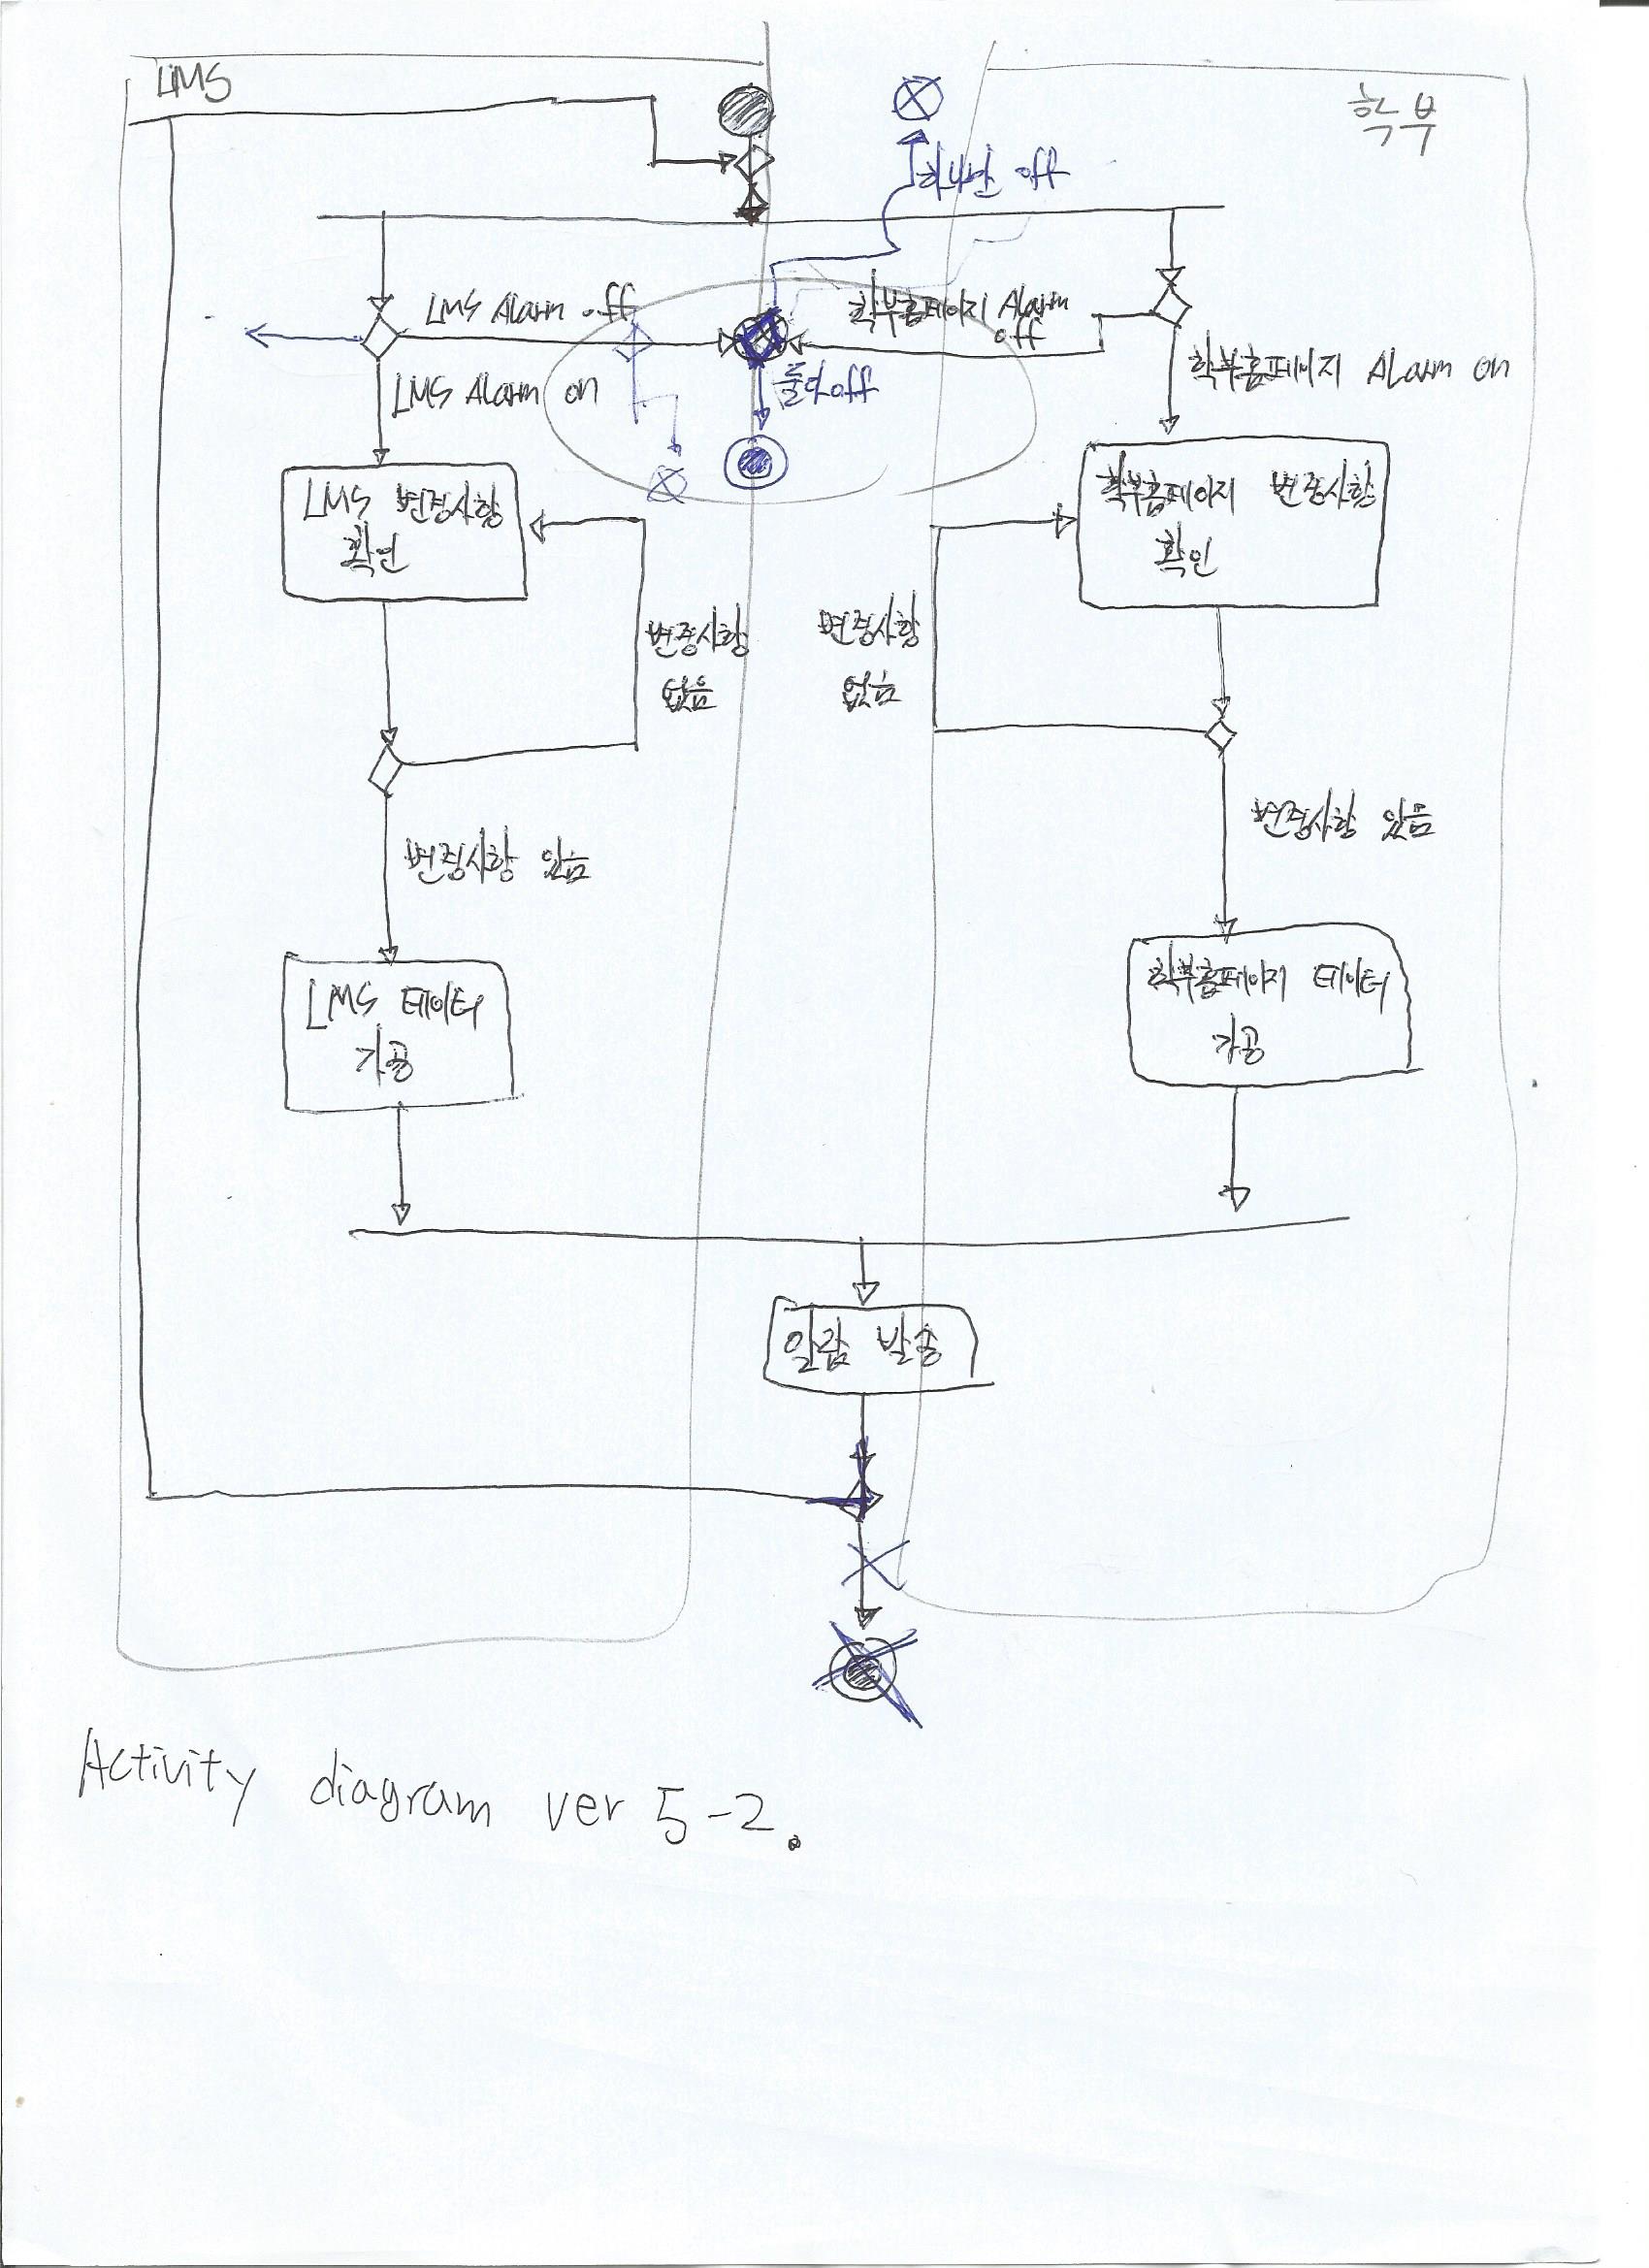 LMS
학부
하나만 off
LMS Alarm off
학부홈페이지 Alarm
off
LMS Alarm on
둘다 off
학부홈페이지 Alarm on
LMS 변경사항
확인
학부홈페이지 변경사항
확인
변경사항
없음
변경사항
없음
변경사항 있음
변경사항 있음
LMS 데이터
가공
학부홈페이지 데이터
가공
알람 발송
Activity diagram ver 5-2.